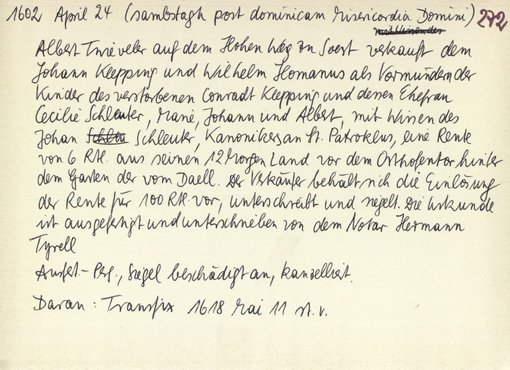 1602 April 24 (sambstagh post dominicam Misericordia Domini) 272
Albert Twieveler auf dem Hohen Weg zu Soest verkauft dem
Johann Klepping und Wilhelm Homanus als Vormünder der
Kinder des verstorbenen Conradt Klepping und dessen Ehefrau
Cecilie Schleuter, Marie, Johann und Albert, mit Wissen des
Johan Schleuter, Kanonikers an St. Patroklus, eine Rente
von 6 Rtl. aus seinen 12 Morgen Land vor dem Osthofentor hinter
dem Garten der vom Daell. Der Verkäufer behält sich die Einlösung
der Rente für 100 Rtl. vor, unterschreibt und siegelt. Die Urkunde
ist ausgefertigt und unterschrieben von dem Notar Hermann
Tyrell
Ausf.- Perg., Siegel beschädigt an, kanzelliert.
Daran: Transfix 1618 Mai 11 st. v.